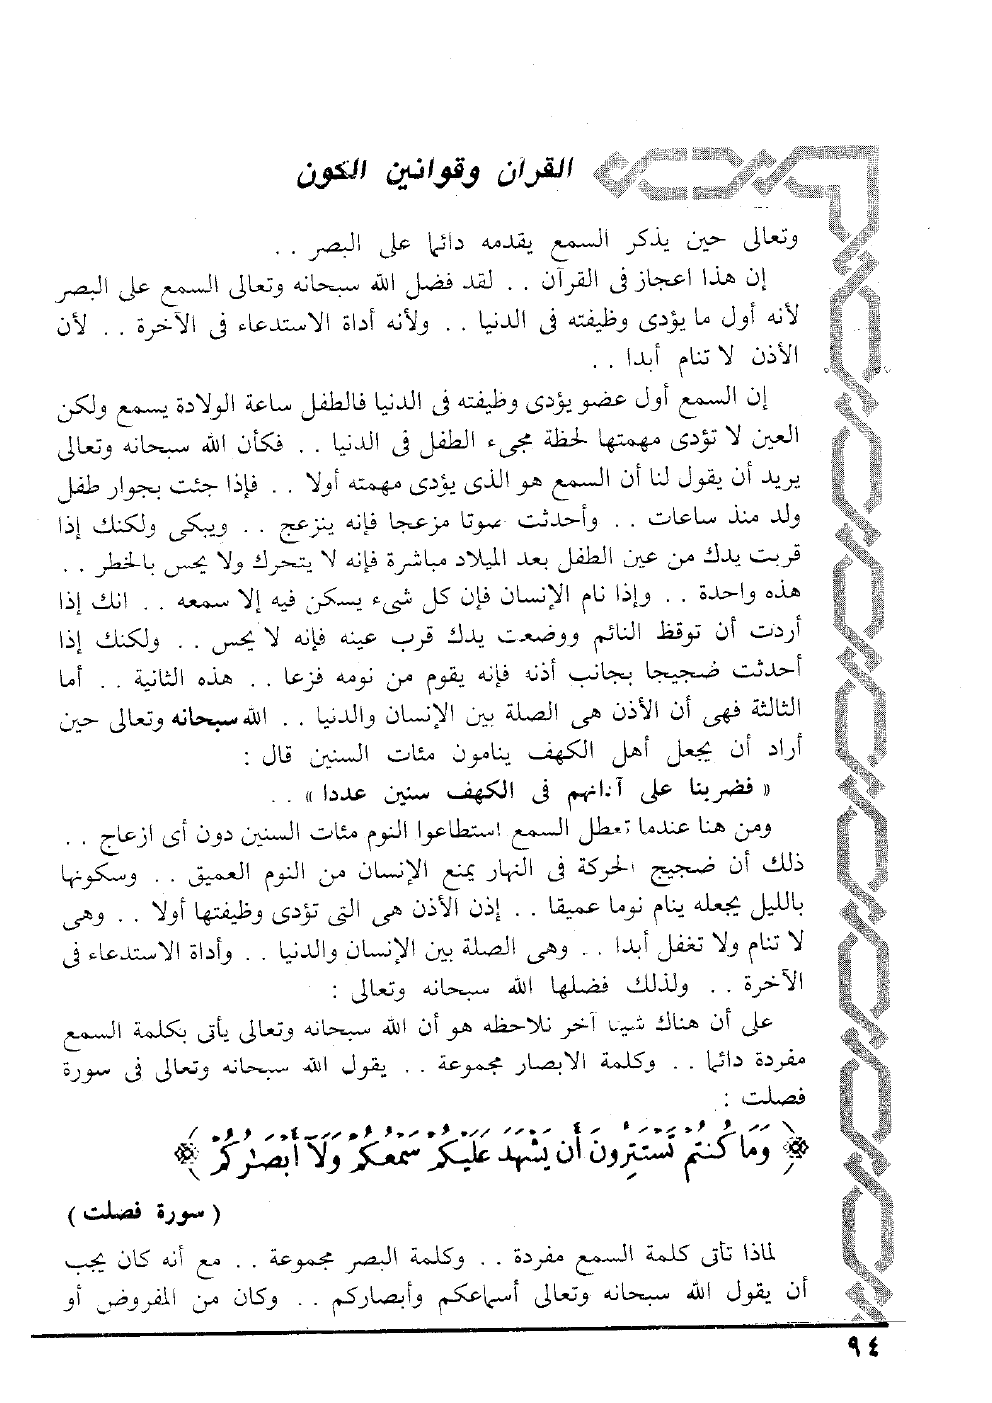 القرآن وقوانين الكون
وتعالى حين يذكر السمع يقدمه دائما على البصر . .
إن هذا اعجاز فى القرآن . . لقد فضل الله سبحانه وتعالى السمع على البصر
لأنه أول ما يؤدى وظيفته فى الدنيا . . ولأنه أداة الاستدعاء فى الآخرة . . لأن
الأذن لا تنام أبدا . .
إن السمع أول عضو يؤدى وظيفته فى الدنيا فالطفل ساعة الولادة يسمع ولكن
العين لا تؤدى مهمتها لحظة مجىء الطفل فى الدنيا . . فكأن الله سبحانه وتعالى
يريد أن يقول لنا أن السمع هو الذى يؤدى مهمته أولا . . فإذا جئت بجوار طفل
ولد منذ ساعات . . وأحدثت صوتا مزعجا فإنه ينزعج . . ويبكى ولكنك إذا
قربت يدك من عين الطفل بعد الميلاد مباشرة فإنه لا يتحرك ولا يحس بالخطر . .
هذه واحدة . . وإذا نام الإنسان فإن كل شىء يسكن فيه إلا سمعه . . انك إذا
أردت أن توقظ النائم ووضعت يدك قرب عينه فإنه لا يحس . . ولكنك إذا
أحدثت ضجيجا بجانب أذنه فإنه يقوم من نومه فزعا . . هذه الثانية . . أما
الثالثة فهى أن الأذن هى الصلة بين الإنسان والدنيا . . الله سبحانه وتعالى حين
أراد أن يجعل أهل الكهف ينامون مئات السنين قال :
« فضربنا على آذانهم فى الكهف سنين عددا » . .
ومن هنا عندما تعطل السمع استطاعوا النوم مئات السنين دون أى ازعاج . .
ذلك أن ضجيج الحركة فى النهار يمنع الإنسان من النوم العميق . . وسكونها
بالليل يجعله ينام نوما عميقا . . إذن الأذن هى التى تؤدى وظيفتها أولا . . وهى
لا تنام ولا تغفل أبدا . . وهى الصلة بين الإنسان والدنيا . . وأداة الاستدعاء فى
الآخرة . . ولذلك فضلها الله سبحانه وتعالى :
على أن هناك شيئا آخر نلاحظه هو أن الله سبحانه وتعالى يأتى بكلمة السمع
مفردة دائما . . وكلمة الابصار مجموعة . . يقول الله سبحانه وتعالى فى سورة
فصلت :
﴿ وَمَا كُنتُمْ تَسْتَتِرُونَ أَن يَشْهَدَ عَلَيْكُمْ سَمْعُكُمْ وَلَآ أَبْصَٰرُكُمْ ﴾
( سورة فصلت )
لماذا تأتى كلمة السمع مفردة . . وكلمة البصر مجموعة . . مع أنه كان يجب
أن يقول الله سبحانه وتعالى أسماعكم وأبصاركم . . وكان من المفروض أو
٩٤